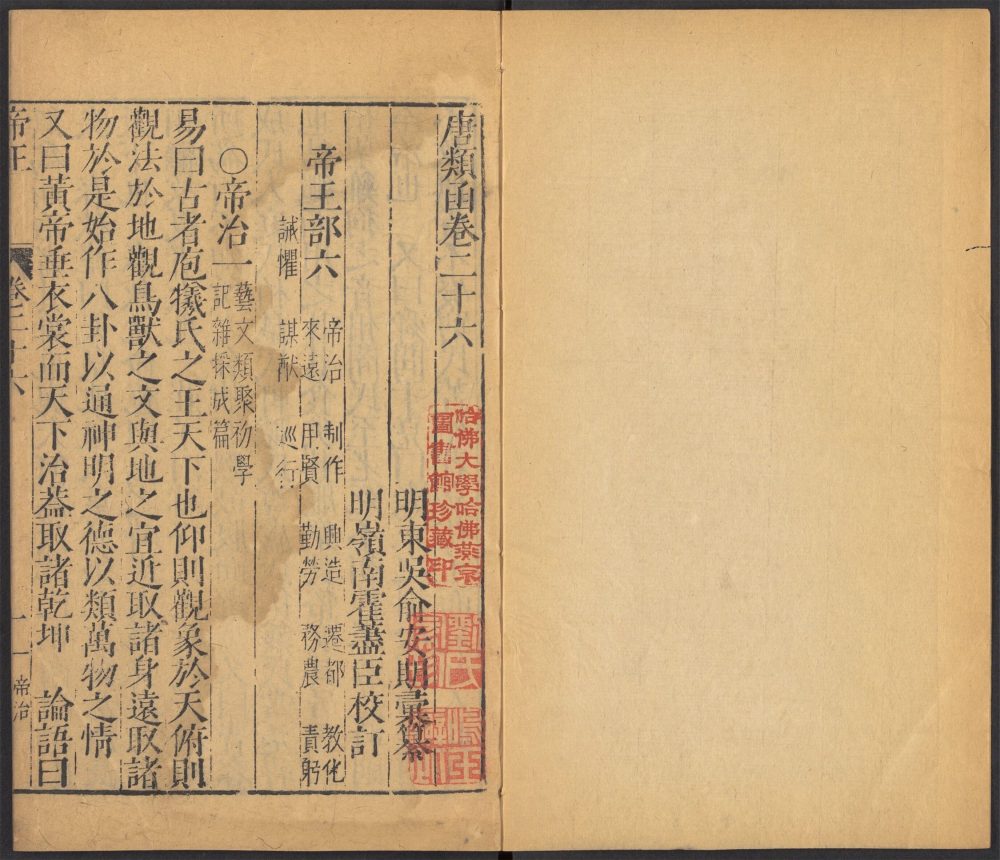 唐類函卷二十六
明東吳俞安期彙纂
明嶺南霍盡臣校訂
帝王部六
帝治 制作 興造 遷都 教化
來遠 用賢 勤勞 務農 責躬
誡懼 謀猷 巡行
○帝治一
藝文類聚初學
記雜採成篇
易曰古者庖犧氏之王天下也仰則觀象於天俯則
觀法於地觀鳥獸之文與地之宜近取諸身遠取諸
物於是始作八卦以通神明之德以類萬物之情
又曰黃帝垂衣裳而天下治葢取諸乾坤 論語曰
帝王 卷二十六 一 帝治
哈佛大學哈佛燕京
圖書館珍藏印
劉氏